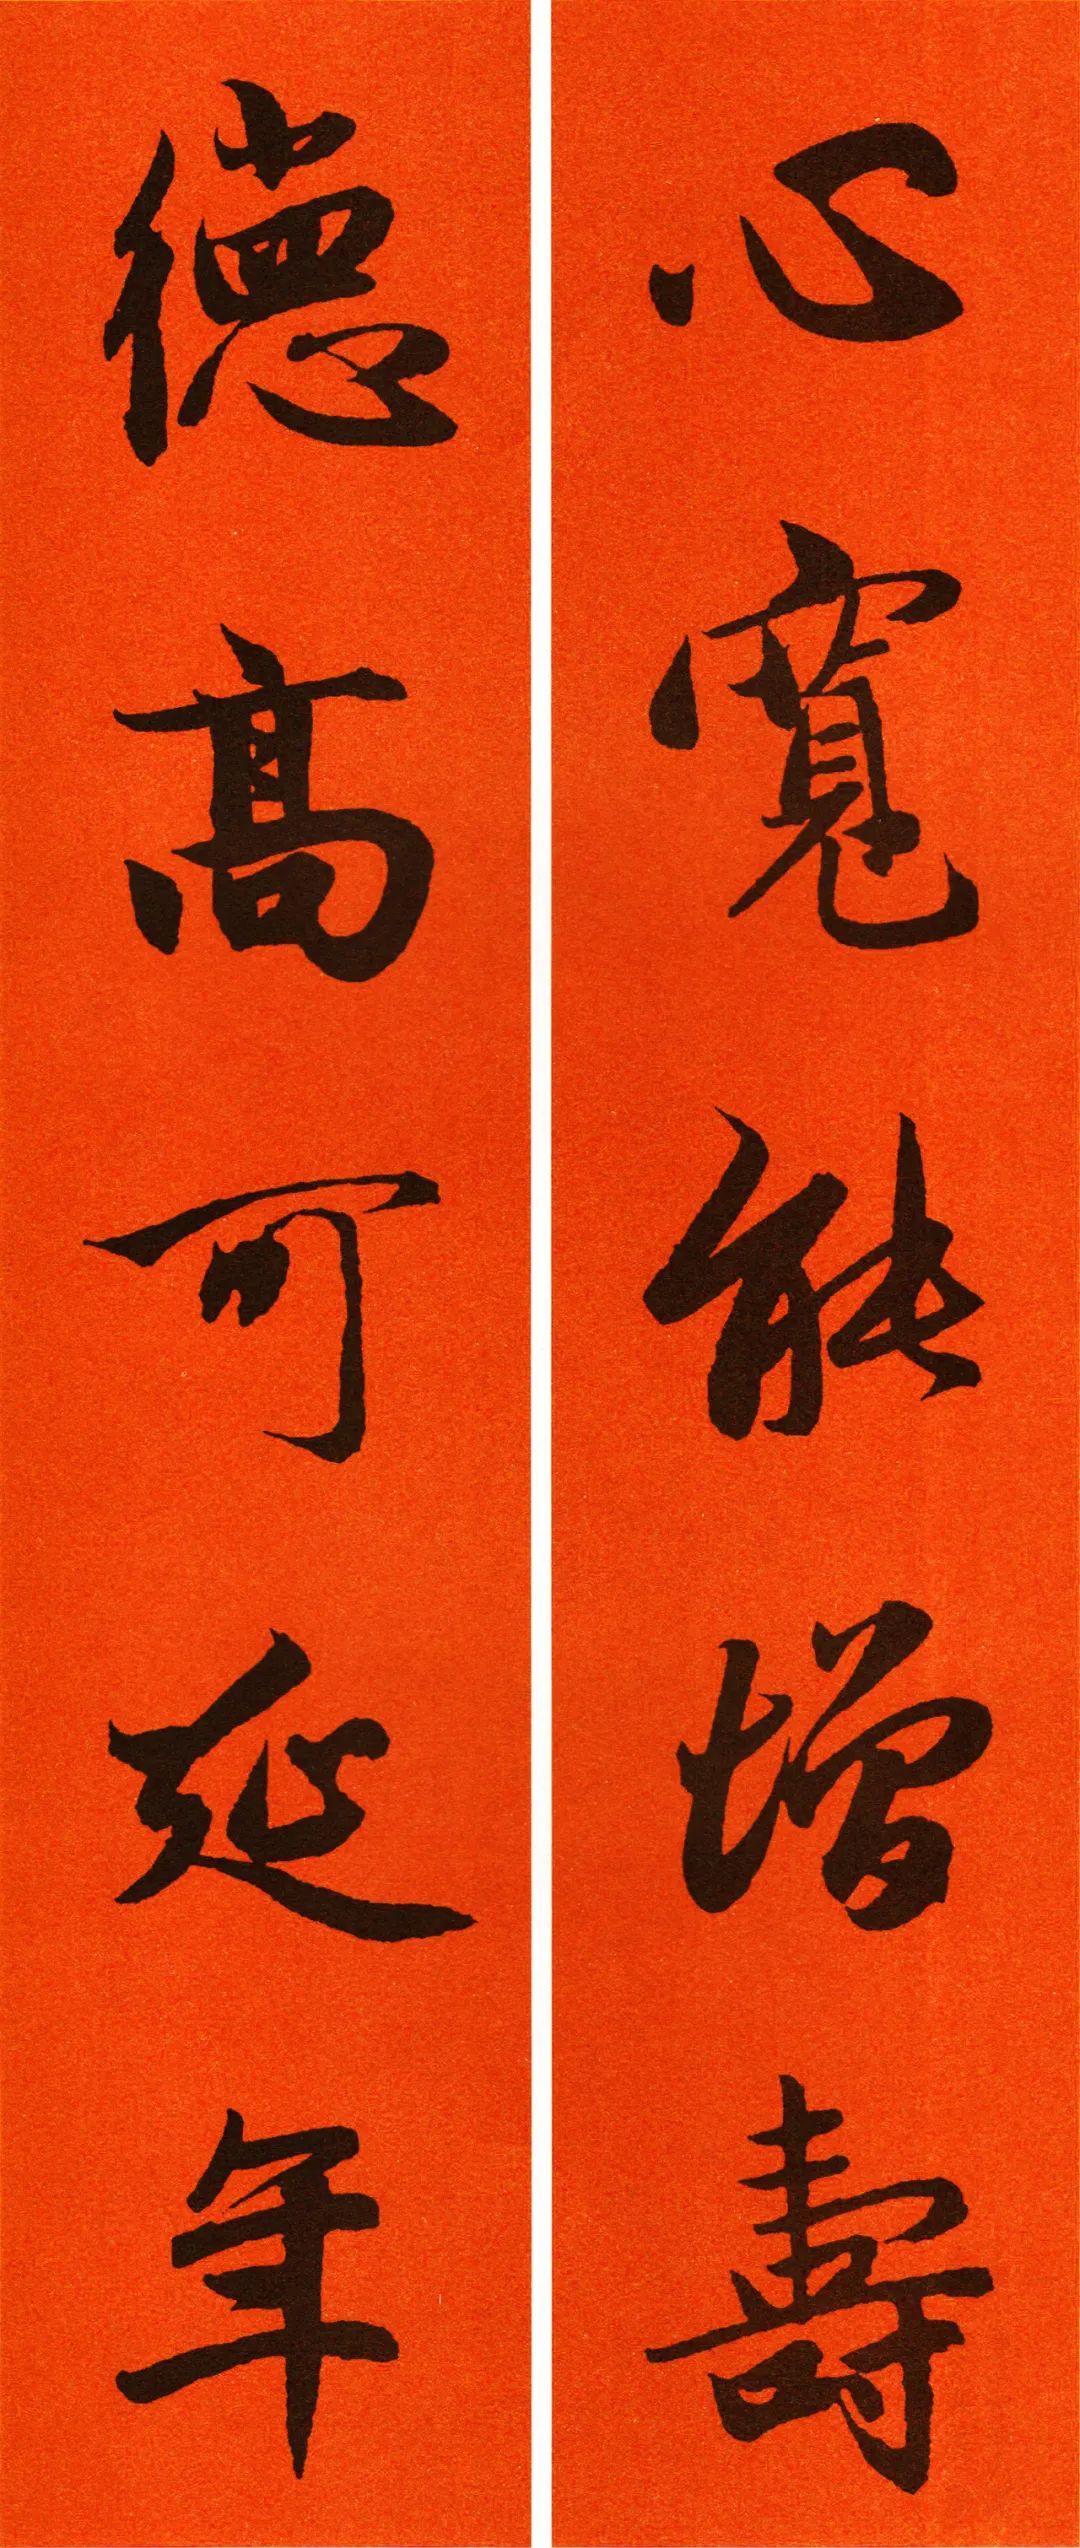 心寬能增壽
德高可延年